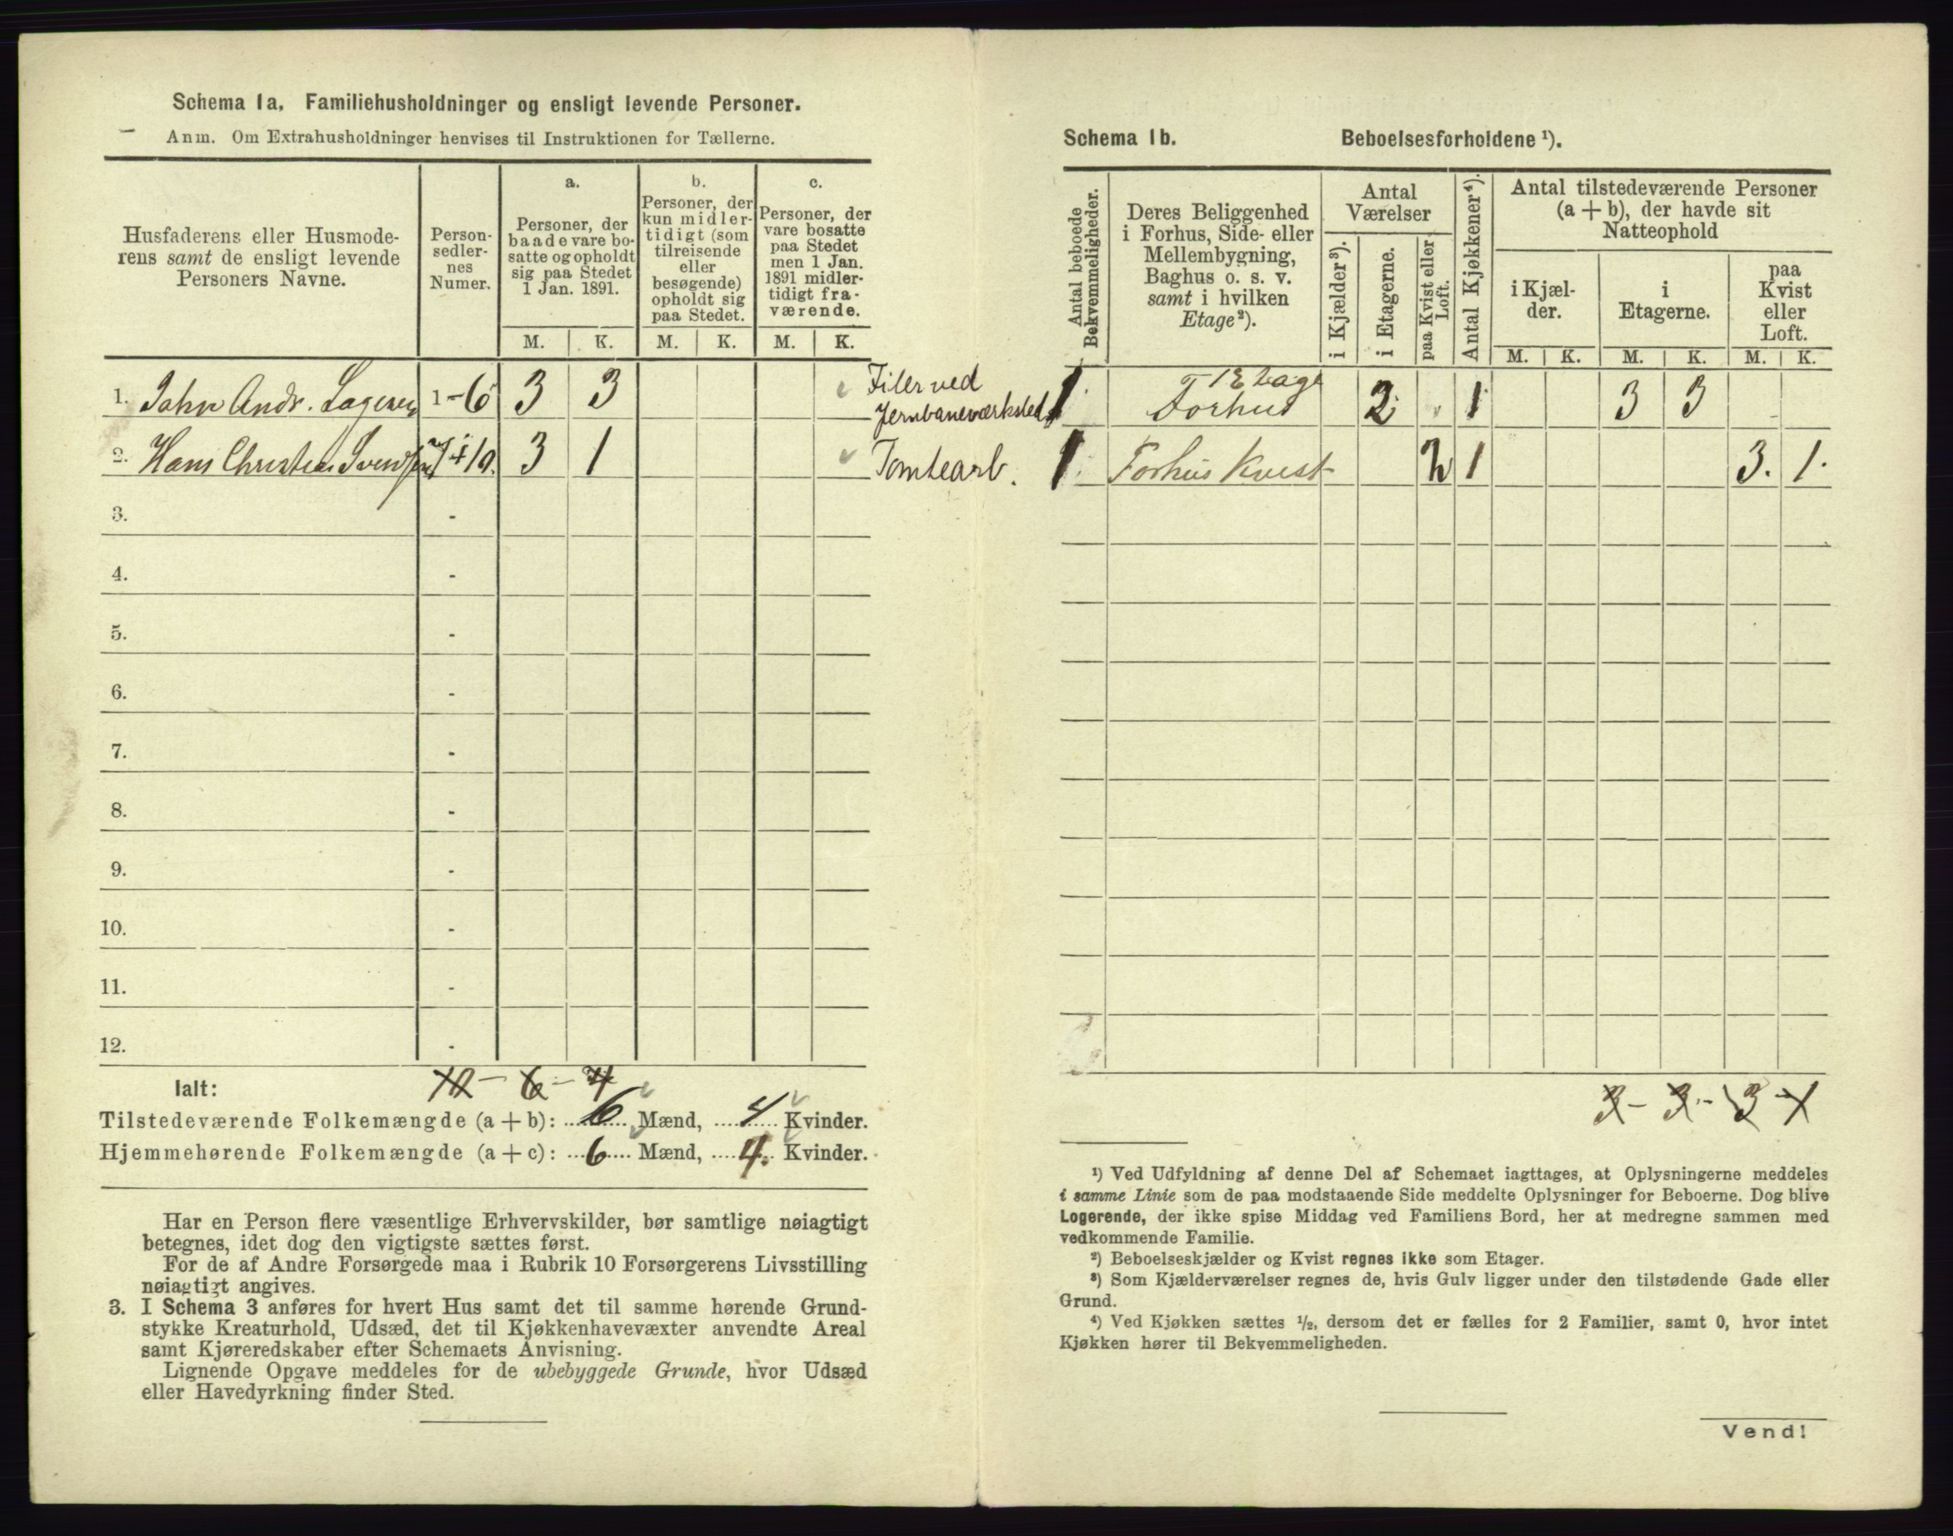 Schema 1a. Familiehusholdninger og ensligt levende Personer.
Anm. Om Extrahusholdninger henvises til Instruktionen for Tællerne.
Husfaderens eller Husmode-
rens samt de ensligt levende
Personers Navne.
Person-
sedler-
nes
Numer.
a.
Personer, der
baade vare bo-
satte og opholdt
sig paa Stedet
1 Jan. 1891.
b.
Personer, der
kun midler-
tidigt (som
tilreisende
eller
besøgende)
opholdt sig
paa Stedet.
c.
Personer, der
vare bosatte
paa Stedet
men 1 Jan.
1891 midler-
tidigt fra-
værende.
M. K. M. K. M. K.
1. John Andr. 1 - 6 3 3 Filer ved
Jernbaneværksted
2. Hans Christian Svendsen 7 + 10. 3 1 Tomtearb.
3. -
4. -
5. -
6. -
7. -
8. -
9. -
10. -
11. -
12. -
Ialt: 10 - 6 - 4
Tilstedeværende Folkemængde (a + b): 6 Mænd, 4 Kvinder.
Hjemmehørende Folkemængde (a + c): 6 Mænd, 4. Kvinder.
Har en Person flere væsentlige Erhvervskilder, bør samtlige nøiagtigt
betegnes, idet dog den vigtigste sættes først.
For de af Andre Forsørgede maa i Rubrik 10 Forsørgerens Livsstilling
nøiagtigt angives.
3. I Schema 3 anføres for hvert Hus samt det til samme hørende Grund-
stykke Kreaturhold, Udsæd, det til Kjøkkenhavevæxter anvendte Areal
samt Kjøreredskaber efter Schemaets Anvisning.
Lignende Opgave meddeles for de ubebyggede Grunde, hvor Udsæd
eller Havedyrkning finder Sted.
Schema 1b. Beboelsesforholdene ¹).
Antal beboede
Bekvemmeligheder.
Deres Beliggenhed
i Forhus, Side- eller
Mellembygning,
Baghus o. s. v.
samt i hvilken
Etage²).
Antal
Værelser
i Kjælder³).
i Etagerne.
paa Kvist eller
Loft.
Antal Kjøkkener⁴).
Antal tilstedeværende Personer
(a + b), der havde sit
Natteophold
i Kjæl-
der.
i
Etagerne.
paa
Kvist
eller
Loft.
M. K. M. K. M. K.
1. 1 Etage
Forhus 2 1 3 3
1. Forhus Kvist 2 1 3. 1.
3 - 3 - 3 - 1
¹) Ved Udfyldning af denne Del af Schemaet iagttages, at Oplysningerne meddeles
i samme Linie som de paa modstaaende Side meddelte Oplysninger for Beboerne. Dog blive
Logerende, der ikke spise Middag ved Familiens Bord, her at medregne sammen med
vedkommende Familie.
²) Beboelseskjælder og Kvist regnes ikke som Etager.
³) Som Kjælderværelser regnes de, hvis Gulv ligger under den tilstødende Gade eller
Grund.
⁴) Ved Kjøkken sættes ½, dersom det er fælles for 2 Familier, samt 0, hvor intet
Kjøkken hører til Bekvemmeligheden.
Vend!